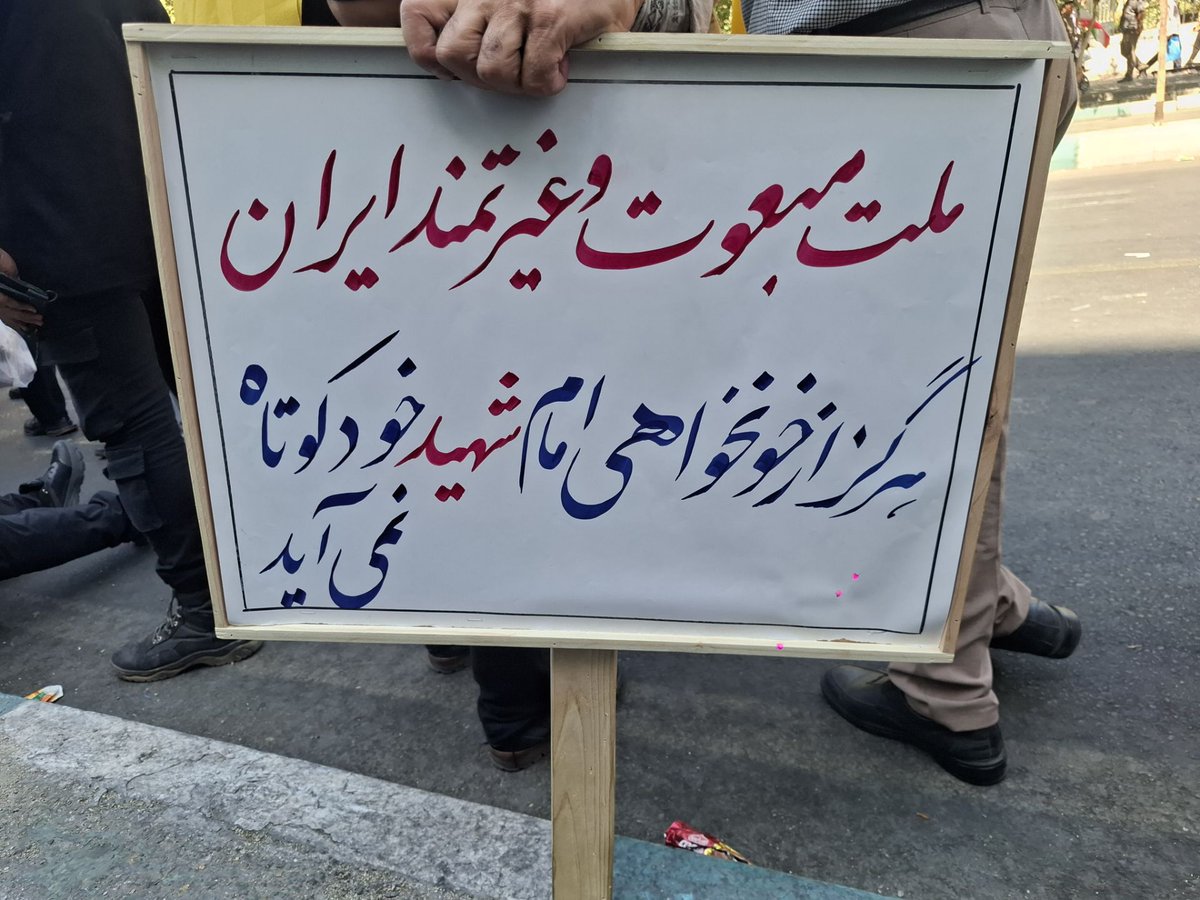 ملت مبعوت و غیرتمند ایران
هرگز از خونخواهی امام شهید خود کوتاه
نمی آید